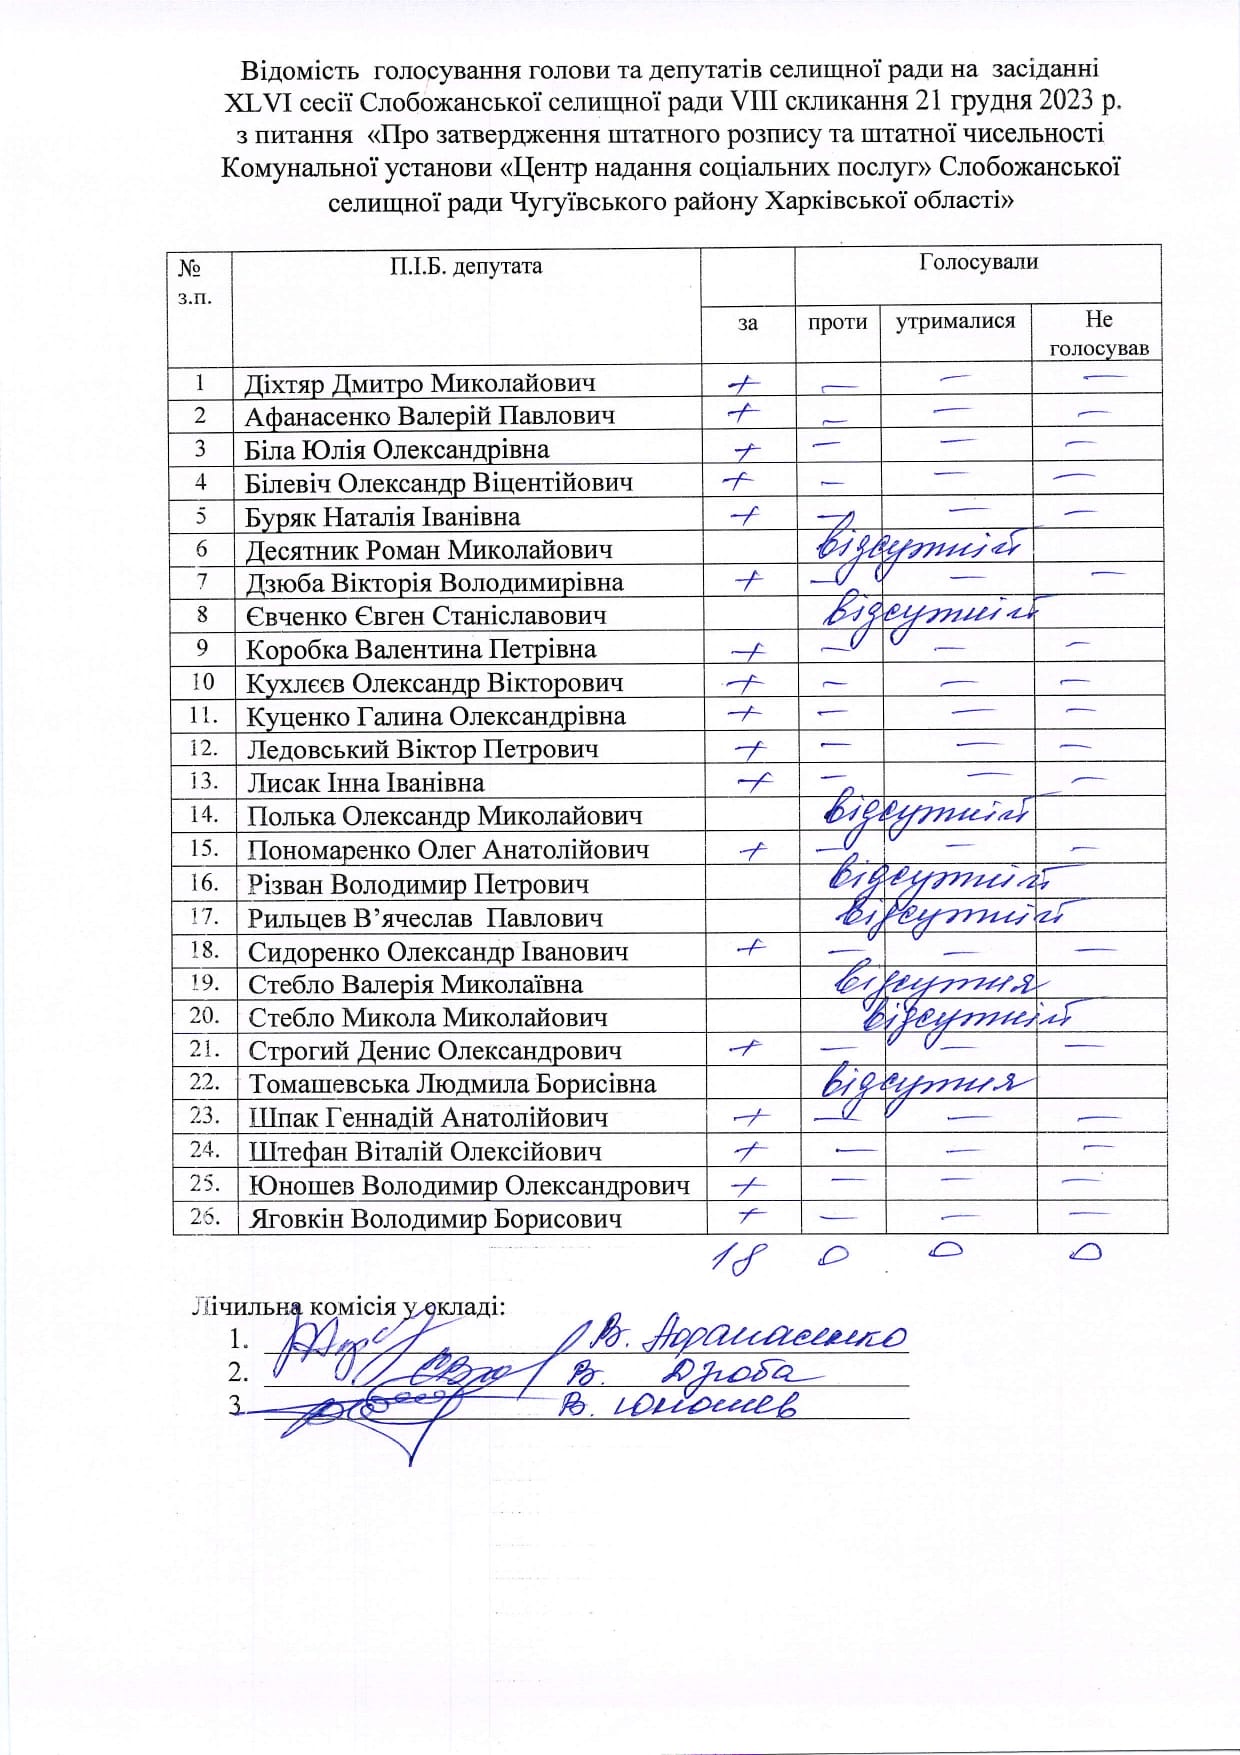 Відомість голосування голови та депутатів селищної ради на засіданні
XLVI сесії Слобожанської селищної ради VIII скликання 21 грудня 2023 р.
з питання «Про затвердження штатного розпису та штатної чисельності
Комунальної установи «Центр надання соціальних послуг» Слобожанської
селищної ради Чугуївського району Харківської області»
№ з.п. П.І.Б. депутата Голосували
за проти утрималися Не голосував
1 Діхтяр Дмитро Миколайович + — — —
2 Афанасенко Валерій Павлович + — — —
3 Біла Юлія Олександрівна + — — —
4 Білевіч Олександр Віцентійович + — — —
5 Буряк Наталія Іванівна + — — —
6 Десятник Роман Миколайович відсутній
7 Дзюба Вікторія Володимирівна + — — —
8 Євченко Євген Станіславович відсутній
9 Коробка Валентина Петрівна + — — —
10 Кухлєєв Олександр Вікторович + — — —
11. Куценко Галина Олександрівна + — — —
12. Ледовський Віктор Петрович + — — —
13. Лисак Інна Іванівна + — — —
14. Полька Олександр Миколайович відсутній
15. Пономаренко Олег Анатолійович + — — —
16. Різван Володимир Петрович відсутній
17. Рильцев В’ячеслав Павлович відсутній
18. Сидоренко Олександр Іванович + — — —
19. Стебло Валерія Миколаївна відсутня
20. Стебло Микола Миколайович відсутній
21. Строгий Денис Олександрович + — — —
22. Томашевська Людмила Борисівна відсутня
23. Шпак Геннадій Анатолійович + — — —
24. Штефан Віталій Олексійович + — — —
25. Юношев Володимир Олександрович + — — —
26. Яговкін Володимир Борисович + — — —
18 0 0 0
Лічильна комісія у складі:
1. В. Афанасенко
2. В. Дзюба
3 В. Юношев